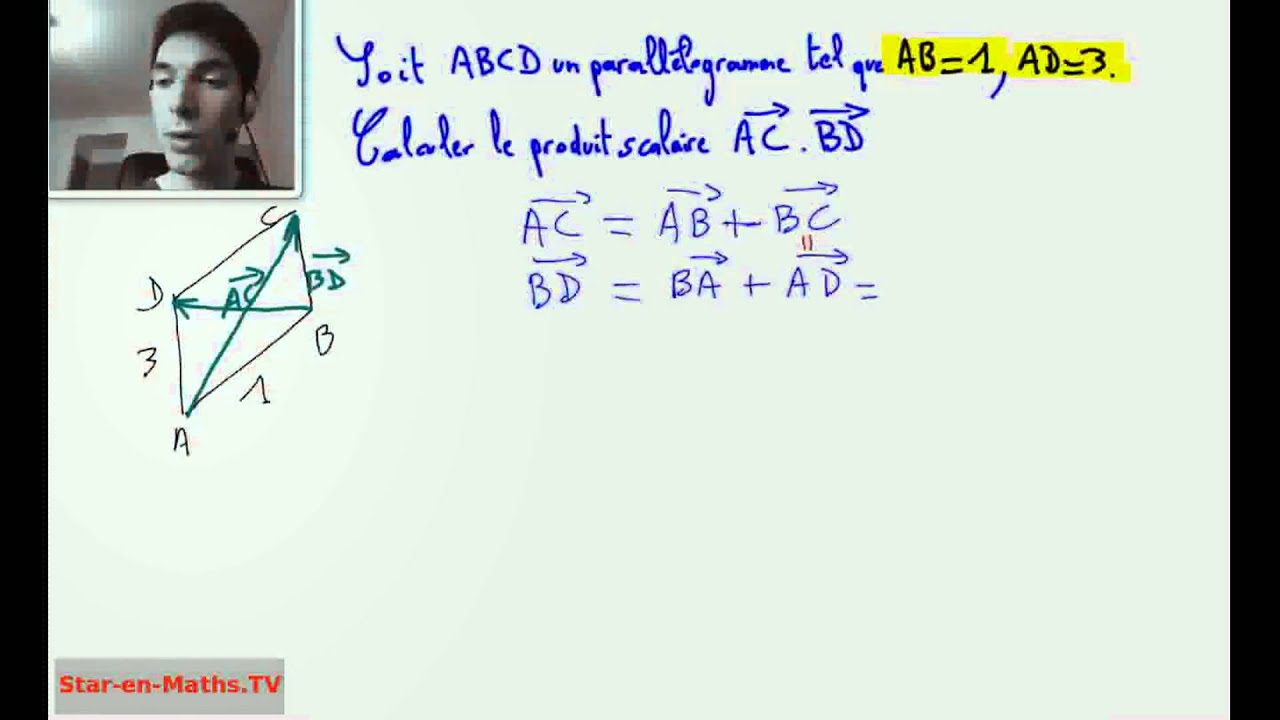 Soit ABCD un parallélogramme tel que AB=1, AD=3.
Calculer le produit scalaire AC→ . BD→
AC→ = AB→ + BC→
=
BD→ = BA→ + AD→ =
C
D
AC→
BD→
B
3
1
A
Star-en-Maths.TV